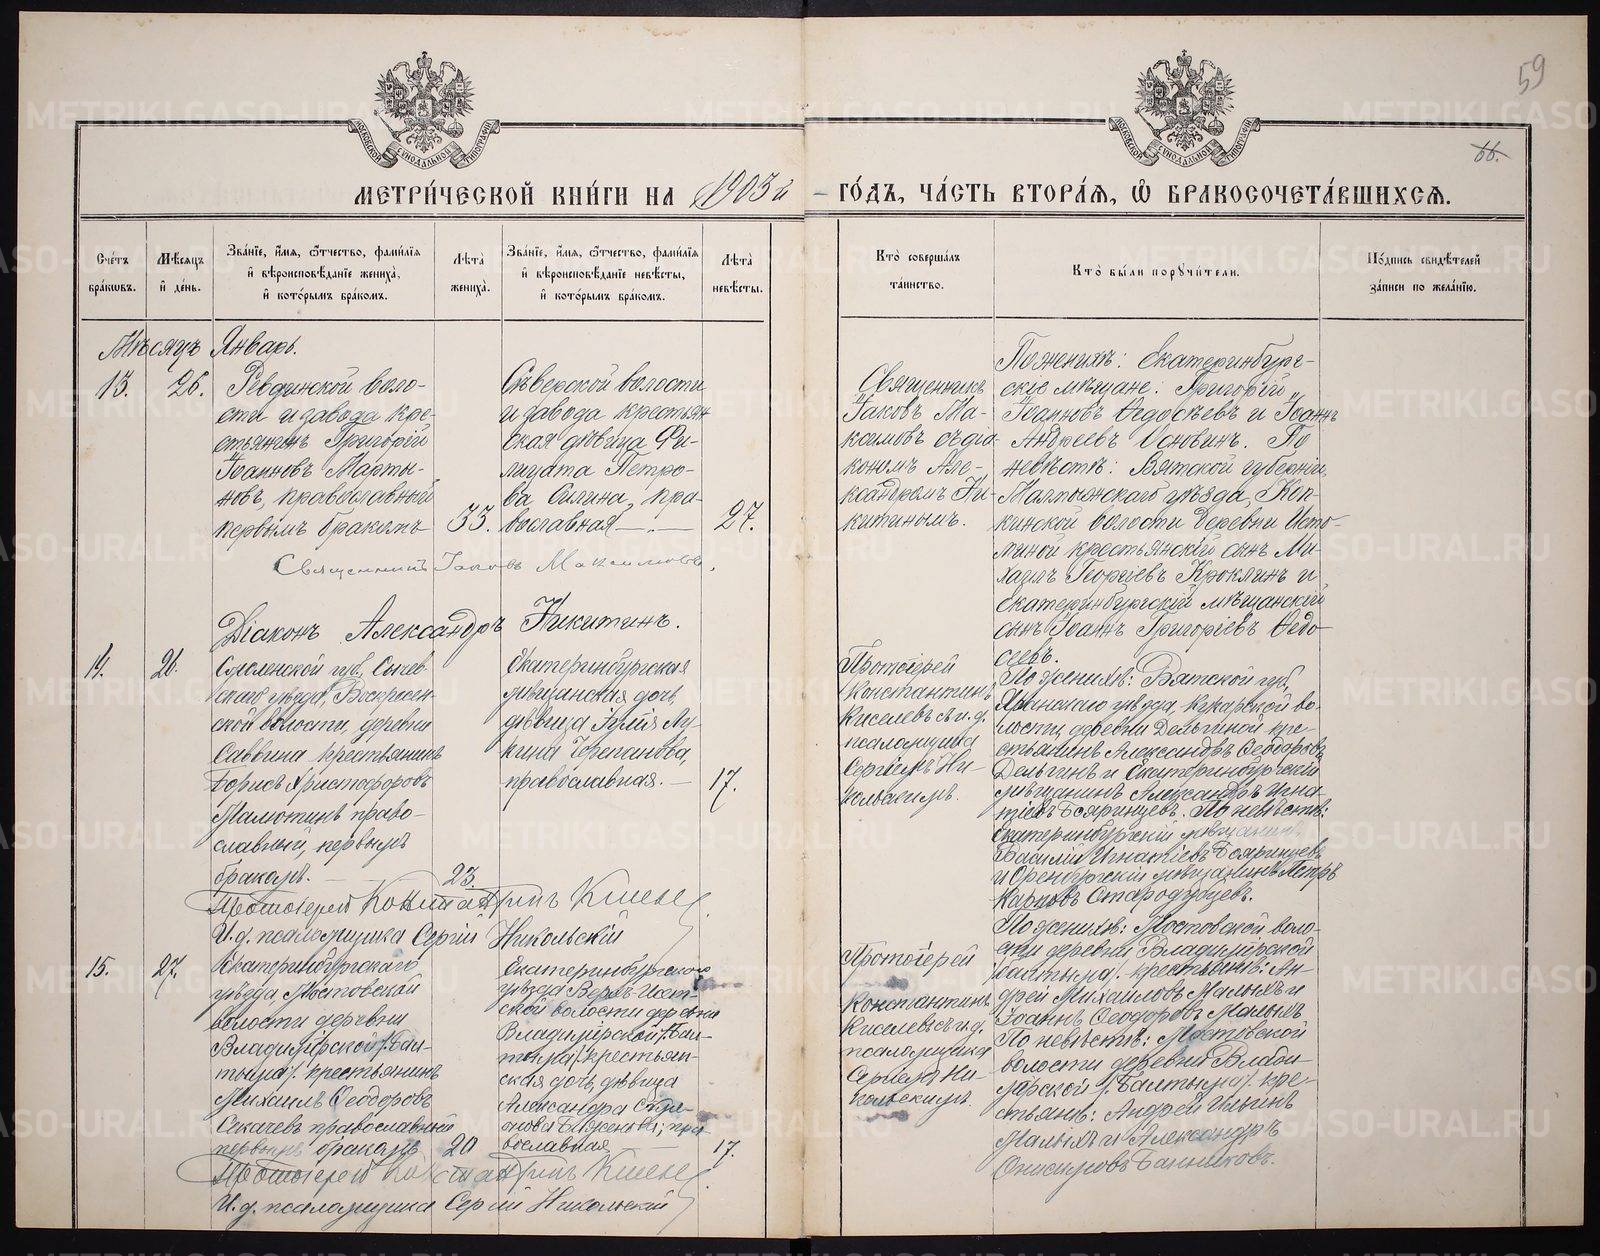 59
66.
МОСКОВСКОЙ СѴНОДАЛЬНОЙ ТИПОГРАФІИ
МОСКОВСКОЙ СѴНОДАЛЬНОЙ ТИПОГРАФІИ
МЕТРИ́ЧЕСКОЙ КНИ́ГИ НА 1903й – ГО́ДЪ, ЧА́СТЬ ВТОРА́Я, Ѡ БРАКОСОЧЕТА́ВШИХСЯ.
Сче́тъ бра́ковъ.
Мѣ́сяцъ и҆ де́нь.
Зва́нїе, и҆́мя, ѻ҆́тчество, фами́лїя
и҆ вѣроисповѣ́данїе жениха̀,
и҆ кото́рымъ бра́комъ.
Лѣта̀ жениха̀.
Зва́нїе, и҆́мя, ѻ҆́тчество, фами́лїя
и҆ вѣроисповѣ́данїе невѣ́сты,
и҆ кото́рымъ бра́комъ.
Лѣта̀ невѣ́сты.
Кто̀ соверша́лъ
та́инство.
Кто̀ бы́ли порꙋчи́тели.
По́дпись свидѣ́телей
за́писи по жела́нїю.
Мѣсяцъ Январь.
13. 26.
Ревдинской воло-
сти и завода кре-
стьянинъ Григорій
Іоанновъ Марты-
новъ, православный
первымъ бракомъ
33.
Сѣверской волости
и завода крестьян
ская дѣвица Фи-
лицата Петро-
ва Силина, пра-
вославная
27.
Священникъ
Іаковъ Ма-
ксимовъ съ діа
кономъ Але-
ксандромъ Ни-
китинымъ.
По женихѣ: Екатеринбург-
скіе мѣщане: Григорій
Іоанновъ Ѳедосѣевъ и Іоаннъ
Андреевъ Основинъ. По
невѣстѣ: Вятской губерніи,
Малмыжскаго уѣзда,
кинской волости деревни Исто-
миной крестьянскій сынъ Ми-
хаилъ Георгіевъ Кроклинъ и
екатеринбургскій мѣщанскій
сынъ Іоаннъ Григоріевъ Ѳедо-
сеевъ.
Священникъ Іаковъ Максимовъ.
Діаконъ Александръ Никитинъ.
14. 26.
Смоленской губ., Сычев
скаго уѣзда, Воскресен-
ской волости, деревни
Саввина крестьянинъ
Борисъ Христофоровъ
Мамотинъ право-
славный, первымъ
бракомъ.
23.
Екатеринбургская
мѣщанская дочь,
дѣвица Іулія Лу-
кина Черепанова,
православная.
17.
Протоіерей
Константинъ
Киселевъ съ и.д.
псаломщика
Сергіемъ Ни-
кольскимъ.
По женихѣ: Вятской губ.
Яранскаго уѣзда, Кукарской во-
лости, деревни Дельгиной кре-
стьянинъ Александръ Ѳеодоровъ
Дельгинъ и Екатеринбургскій
мѣщанинъ Александръ Игна-
тіевъ Бояринцевъ. По невѣстѣ:
Екатеринбургскій мѣщанинъ
Василій Игнатіевъ Бояринцевъ
и Оренбургскій мѣщанинъ Петръ
Карповъ Стародубцевъ.
Протоіерей Константинъ Киселев
И.д. псаломщика Сергій Никольскій
15. 27.
Екатеринбургскаго
уѣзда, Мостовской
волости деревни
Владимірской /: Бал-
тыма/. крестьянинъ
Михаилъ Ѳеодоровъ
Секачевъ православный
первымъ бракомъ
20
Екатеринбургскаго
уѣзда Верхъ-Исет-
ской волости деревни
Владимірской /: Бал-
тыма/. крестьян-
ская дочь, дѣвица
Александра
пра-
вославная
17.
Протоіерей
Константинъ
Киселевъ съ и.д.
псаломщика
Сергіемъ Ни-
кольскимъ.
По женихѣ: Мостовской воло-
сти деревни Владимірской
/Балтыма/. крестьянѣ: Ан-
дрей Михаиловъ Малыхъ и
Іоаннъ Ѳеодоровъ Малыхъ
По невѣстѣ: Мостовской
волости деревни Влади-
мірской /: Балтыма/. кре-
стьянѣ: Андрей Ильинъ
Малыхъ и Александръ
Онисимовъ Банниковъ.
Протоіерей Константинъ Киселев
И.д. псаломщика Сергій Никольскій
METRIKI.GASO-URAL.RU